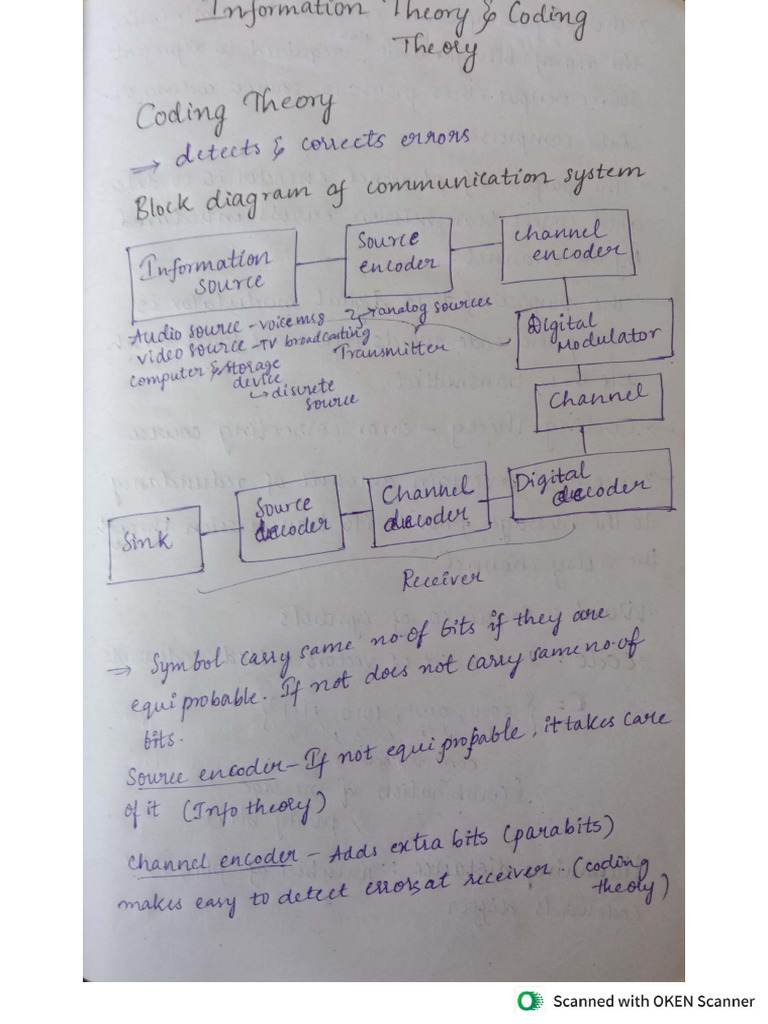 Information Theory & Coding
Theory
Coding Theory
→ detects & corrects errors
Block diagram of communication system
Information
source
Source
encoder
channel
encoder
Audio source - voice msg
video source - TV broadcasting
computer & storage
device
↳ discrete
source
→ analog sources
Transmitter
Digital
Modulator
Channel
Sink
Source
decoder
Channel
decoder
Digital
decoder
Receiver
→ Symbol carry same no. of bits if they are
equiprobable. If not does not carry same no. of
bits.
Source encoder - If not equiprobable, it takes care
of it (Info theory)
Channel encoder - Adds extra bits (parabits)
makes easy to detect errors at receiver. (coding
theory)
Scanned with OKEN Scanner